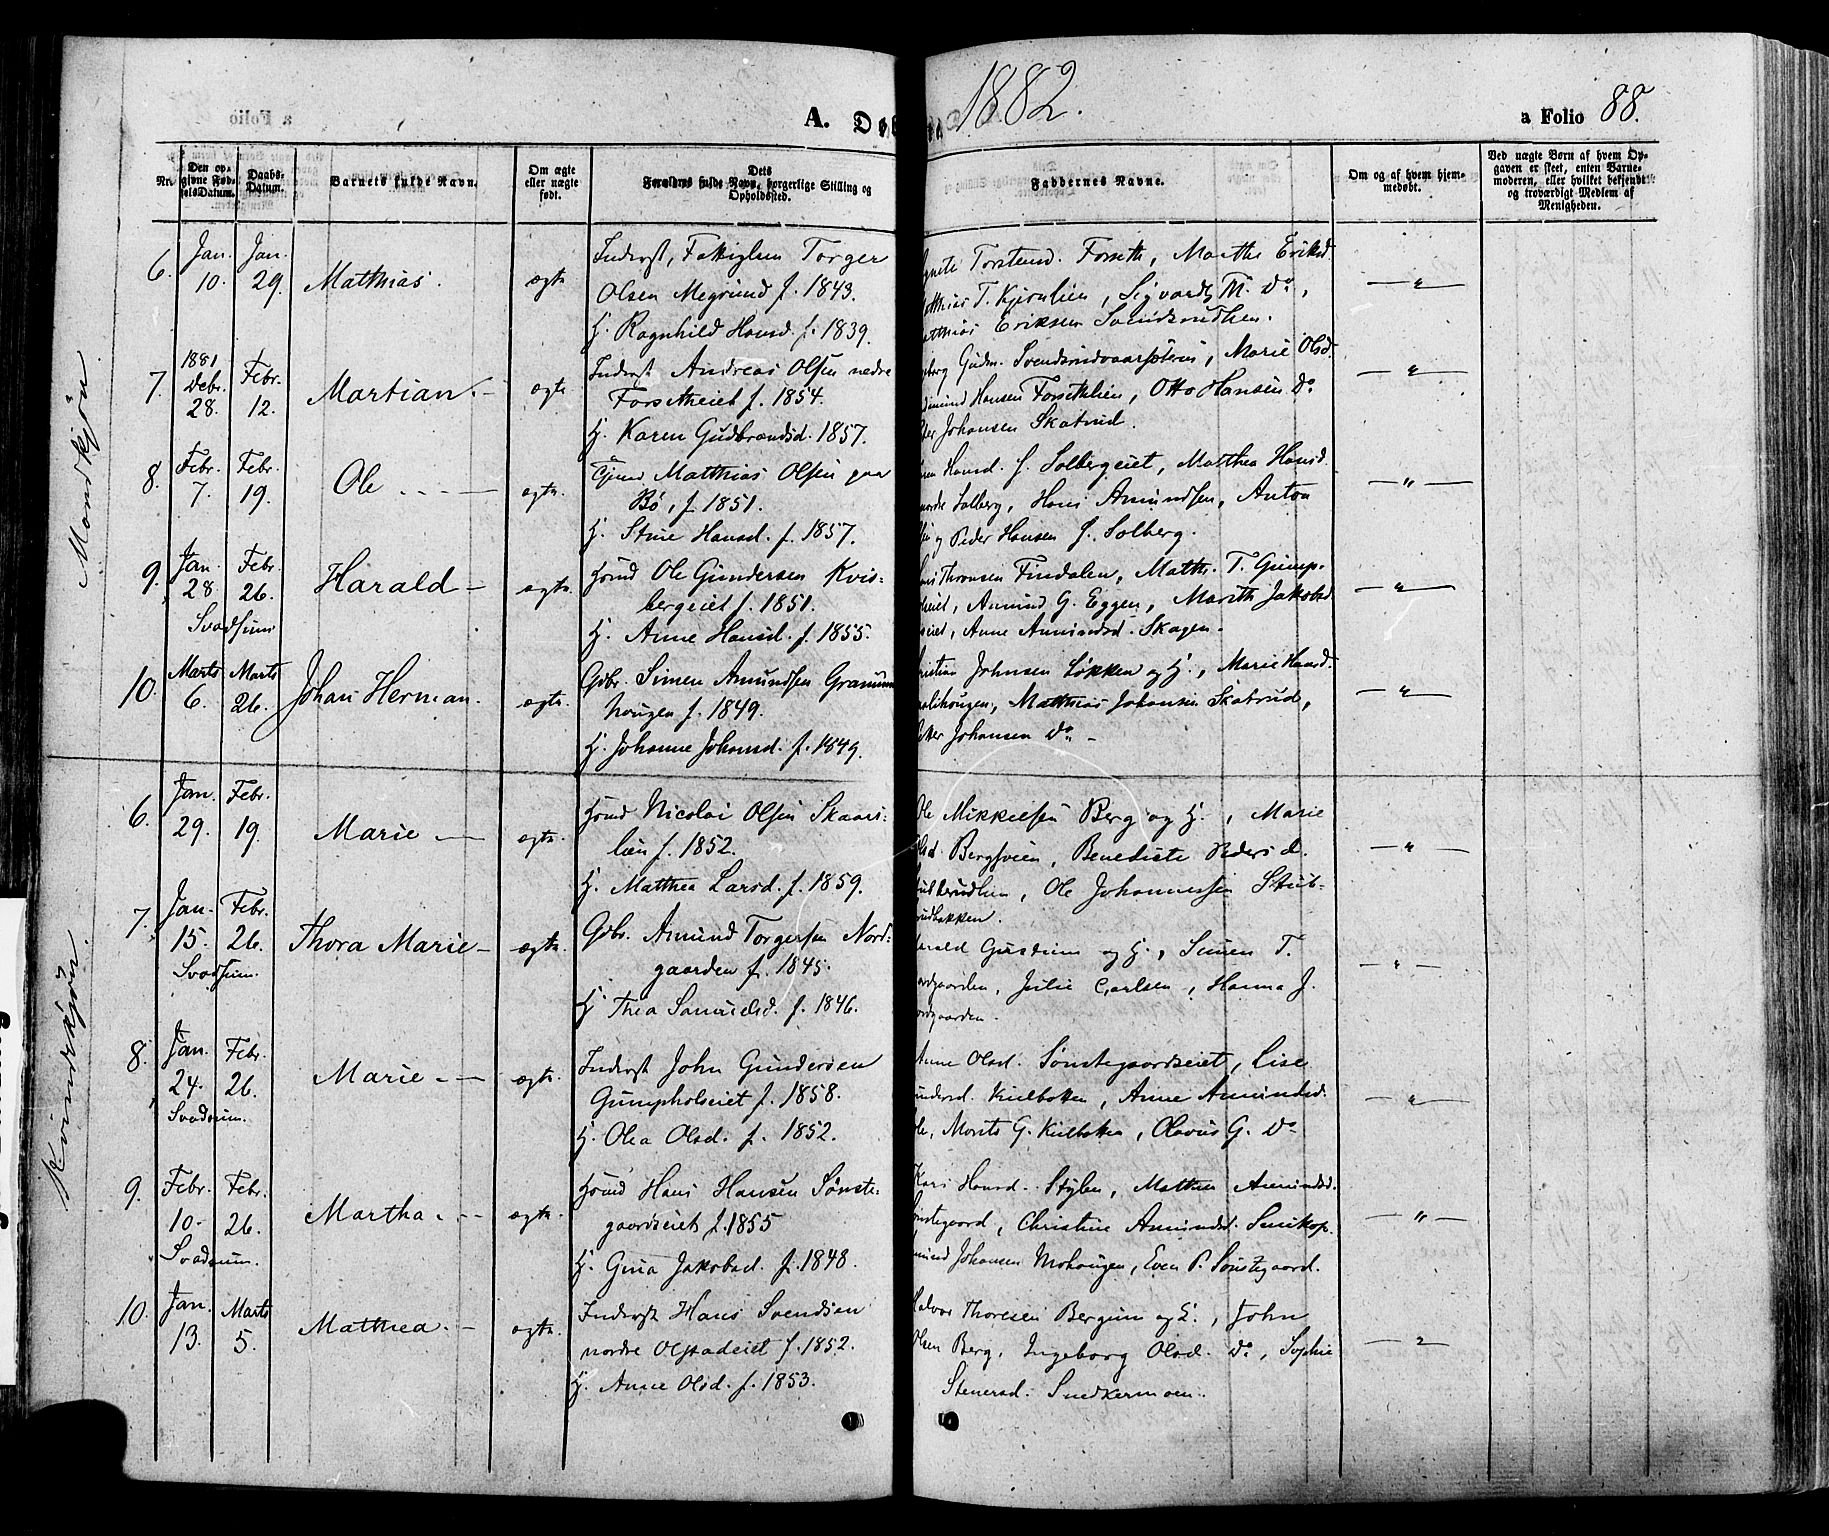 A. Døbte 1882.
a Folio 88.
Nr.
Den opgivne Fødselsdatum.
Daabs-Datum.
Barnets fulde Navn.
Om ægte eller uægte født.
Dets Forældres fulde Navn, borgerlige Stilling og Opholdssted.
Faddernes Navne.
Om og af hvem hjemmedøbt.
Ved uægte Børn af hvem Opgaven er skeet, enten Barnemoderen, eller hvilket bekjendt og troværdigt Medlem af Menigheden.
Mandkjøn
6. Jan. 10. Jan. 29. Matthias. ægte
Inderst, Torger
Olsen Megrund f. 1843.
H. Ragnhild Hansd. f. 1839.
Torstensd. Forseth, Marthe Eriksd.
T. Kjernlien, Sigvard M. Do,
Eriksen
7. 1881 Debr. 28. Febr. 12. Martian. ægte
Inderst Andreas Olsen nedre
Forsetheiet f. 1854.
H. Karen Gudbrandsd. 1857.
Marie Olsd.
Hansen Forsethlien, Otto Hansen Do
Johansen Skatrud.
8. Febr. 7. Febr. 19. Ole ægte.
Matthias Olsen paa
Bø, f. 1851.
H. Stine Hansd. f. 1857.
Hansd. f. Solbergeiet, Matthea Hansd.
Solberg, Hans Amundsen, Anton
og Peder Hansen f. Solberg.
9. Jan. 28 Febr. 26. Harald ægte.
Svadsum
Hsmd Ole Gundersen Kvis-
bergeiet f. 1851.
H. Anne Hansd. f. 1855.
Thronsen Findalen, Mathr. T. Gump-
Amund G. Eggen, Marith Jakobsd
Anne Amundsd. Skagen.
10. Marts 6. Marts 26. Johan Herman. ægte.
Gdbr. Simen Amundsen Granum
hougen f. 1849.
H. Johanne Johansd. f. 1849.
Johnsen Løkken og H., Marie Hansd.
Matthias Johansen Skatrud,
Johansen Do
Kvindekjøn.
6. Jan. 29. Febr. 19. Marie ægte.
Hsmd Nicolai Olsen Skaars-
lien f. 1852.
H. Matthea Larsd. f. 1859.
Ole Mikkelsen Berg og H., Marie
Olsd. Bergsveen, Benedicte Pedersd.
Ole Johannessen Stub-
rudbakken.
7. Jan. 15. Febr. 26. Thora Marie ægte.
Svadsum.
Gdbr. Amund Torgersen Nord-
gaarden f. 1845.
H. Thea Samuelsd. f. 1846.
og H., Simen T.
Julie Carlsen, Hanna J.
8. Jan. 24. Febr. 26. Marie ægte.
Svadsum.
Inderst John Gundersen
Gumpholseiet f. 1858.
H. Olea Olsd. f. 1852.
Anne Olsd. Sønstegaardseiet, Lise
Gundersd. Kulbakken, Anne Amundsd.
Morits G. Kulbakken, Olavus G. Do
9. Febr. 10. Febr. 26. Martha. ægte.
Svadsum.
Hsmd Hans Hansen Sønste-
gaardseiet f. 1855
H. Gina Jakobsd. f. 1848.
Kari Hansd. Stylen, Mathea Amundsd.
Sønstegaard, Christine Amundsd. Smikop.
Amund Johansen Mohaugen, Even P. Sønstegaard.
10. Jan. 13. Marts 5. Mathea. ægte.
Inderst Hans Svendsen
nordre Olstadeiet f. 1852.
H. Anne Olsd. f. 1853.
Halvor Thoresen Bergum og H., John
Olsen Berg, Ingeborg Olsd. Do, Sophie
Stenersd. Snedkermoen.